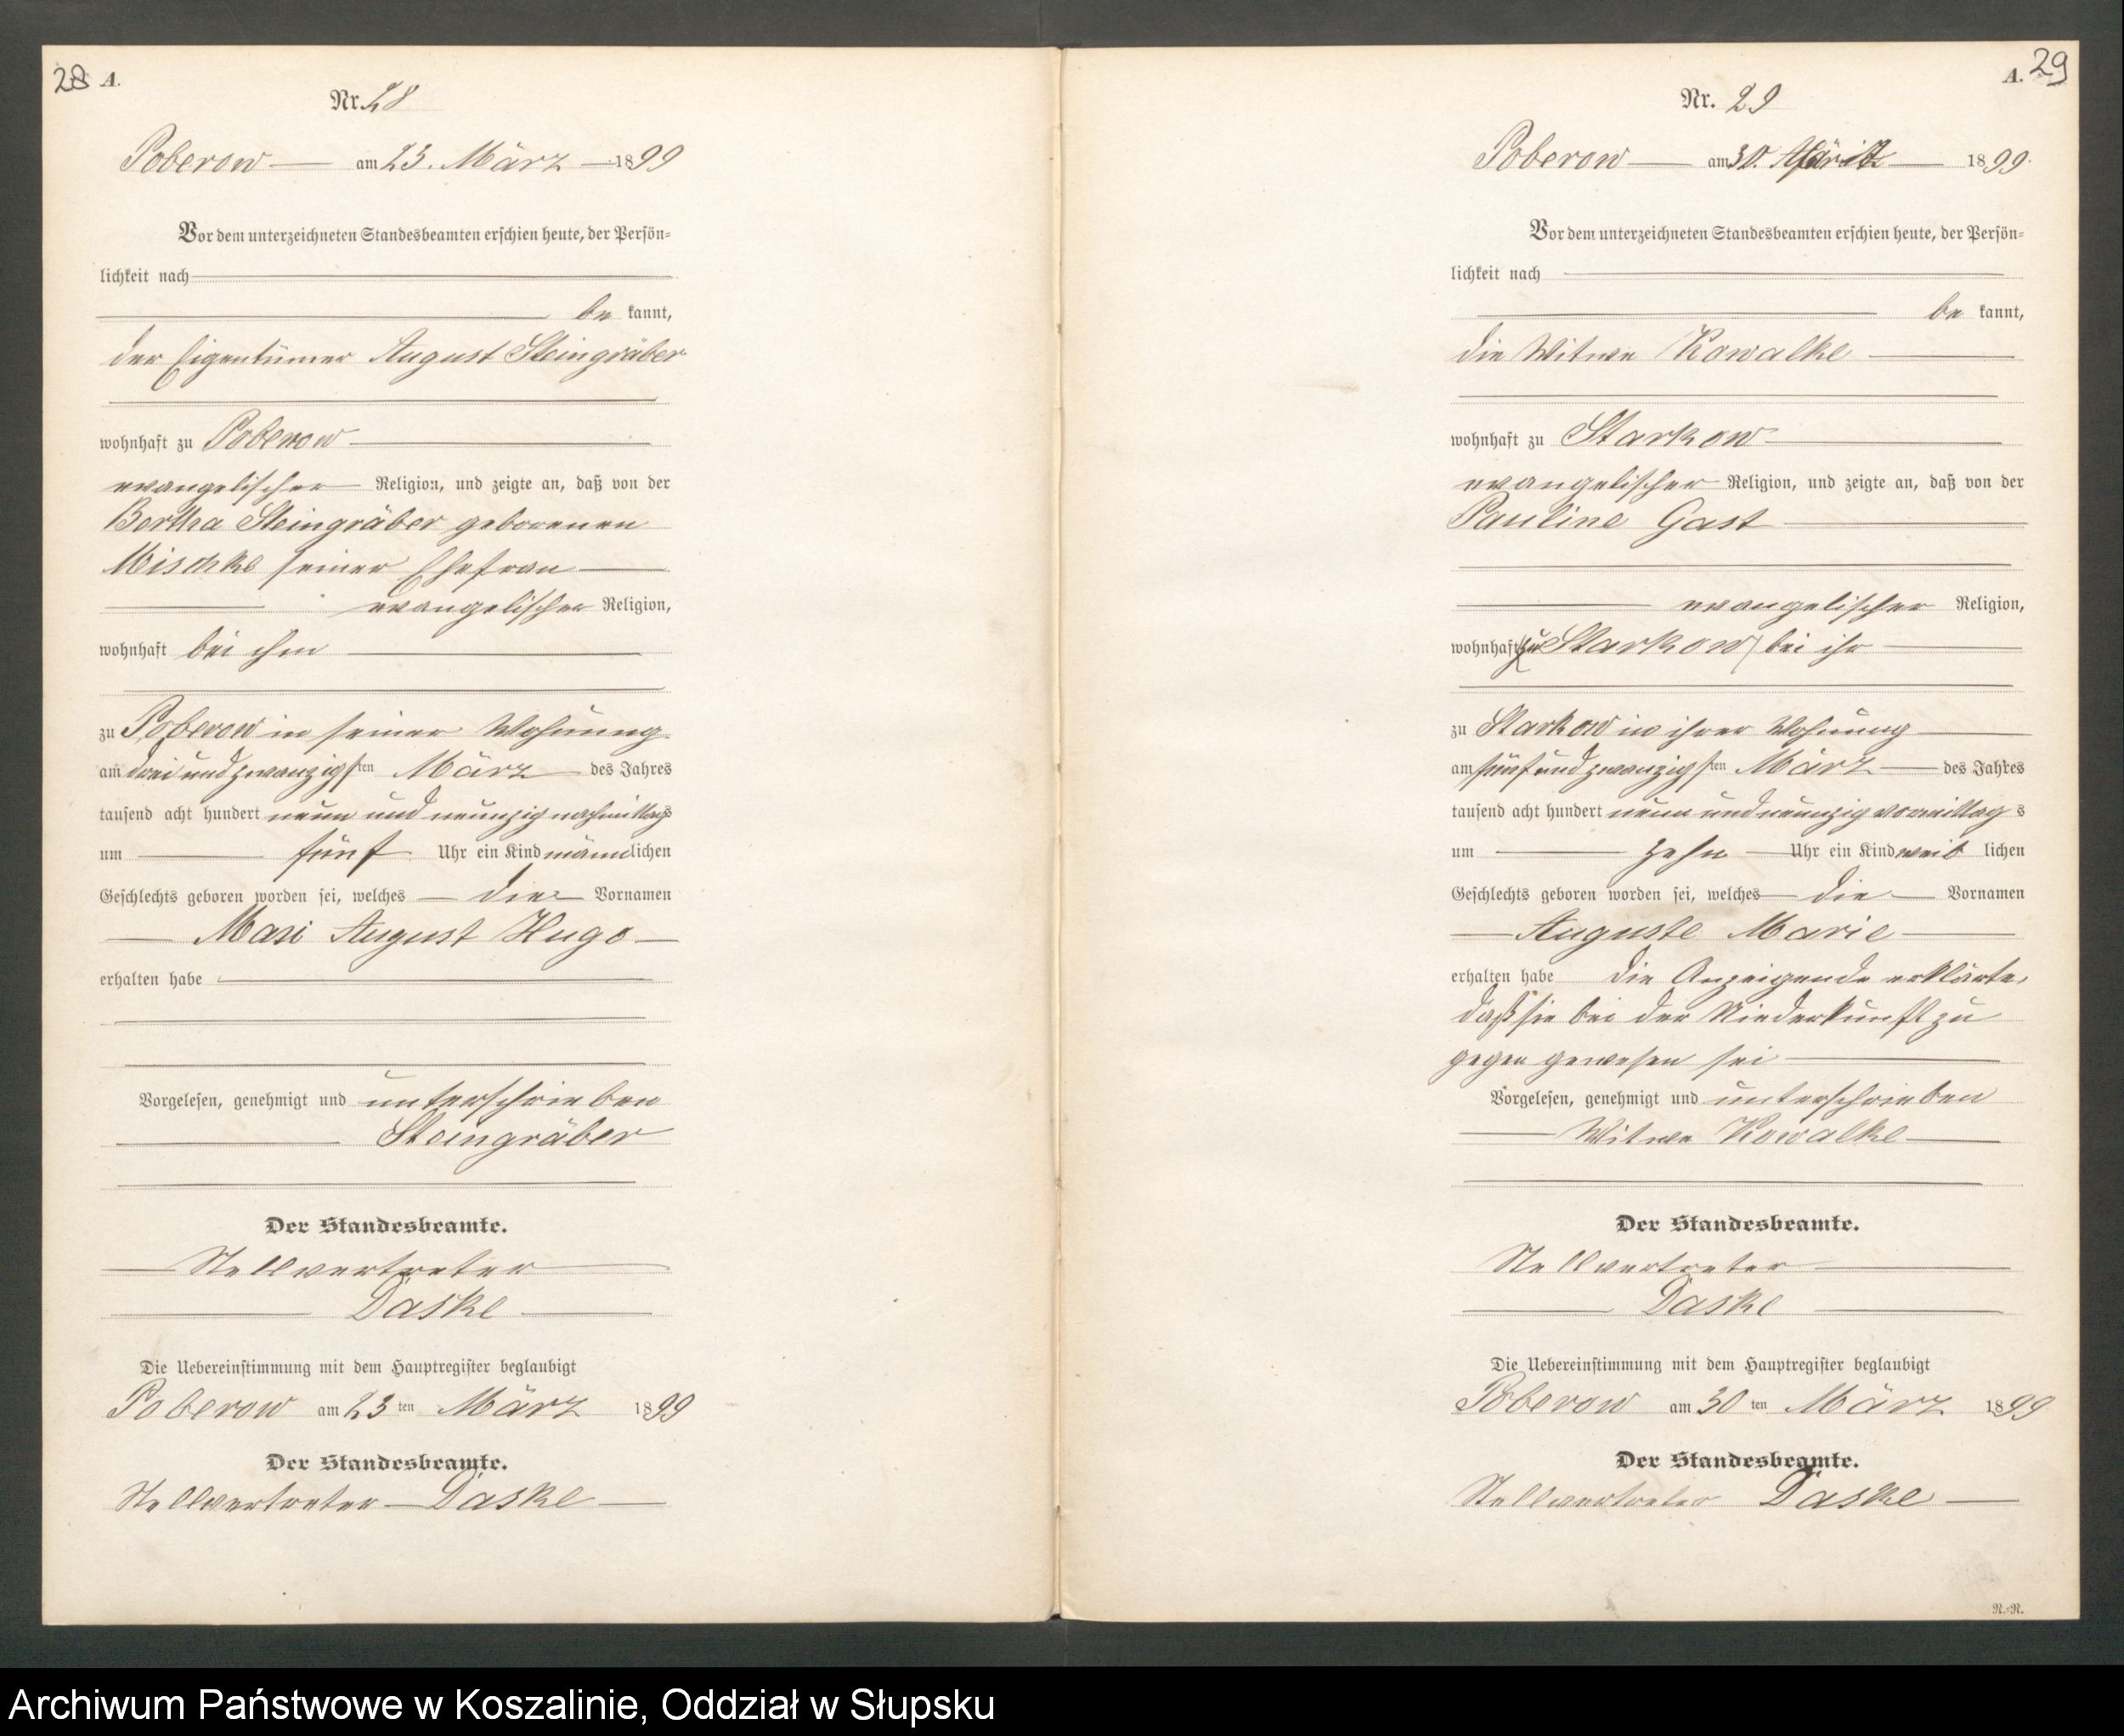 28 A.
Nr. 28
Poberow am 23. März 1899
Vor dem unterzeichneten Standesbeamten erschien heute, der Persön-
lichkeit nach
be kannt,
der Eigentümer August Steingräber
wohnhaft zu Poberow
evangelischer Religion, und zeigte an, daß von der
Bertha Steingräber geborenen
Mischke seiner Ehefrau
evangelischer Religion,
wohnhaft bei ihm
zu Poberow in seiner Wohnung
am drei und zwanzigsten März des Jahres
tausend acht hundert neun und neunzig nachmittags
um fünf Uhr ein Kind männlichen
Geschlechts geboren worden sei, welches die Vornamen
August Hugo
erhalten habe
Vorgelesen, genehmigt und unterschrieben
Steingräber
Der Standesbeamte.
Stellvertreter
Daske
Die Uebereinstimmung mit dem Hauptregister beglaubigt
Poberow am 23 ten März 1899
Der Standesbeamte.
Stellvertreter Daske
A. 29
Nr. 29
Poberow am 30. 1899.
Vor dem unterzeichneten Standesbeamten erschien heute, der Persön-
lichkeit nach
be kannt,
die Witwe Kowalke
wohnhaft zu Starkow
evangelischer Religion, und zeigte an, daß von der
Pauline Gast
evangelischer Religion,
wohnhaft zu Starkow bei ihr
zu Starkow in ihrer Wohnung
am fünf und zwanzigsten März des Jahres
tausend acht hundert neun und neunzig vormittags
um zehn Uhr ein Kind weiblichen
Geschlechts geboren worden sei, welches die Vornamen
Auguste Marie
erhalten habe die Anzeigende erklärte,
daß sie bei der Niederkunft zu
gegen gewesen sei
Vorgelesen, genehmigt und unterschrieben
Witwe Kowalke
Der Standesbeamte.
Stellvertreter
Daske
Die Uebereinstimmung mit dem Hauptregister beglaubigt
Poberow am 30 ten März 1899
Der Standesbeamte.
Stellvertreter Daske
R.=R.
Archiwum Państwowe w Koszalinie, Oddział w Słupsku